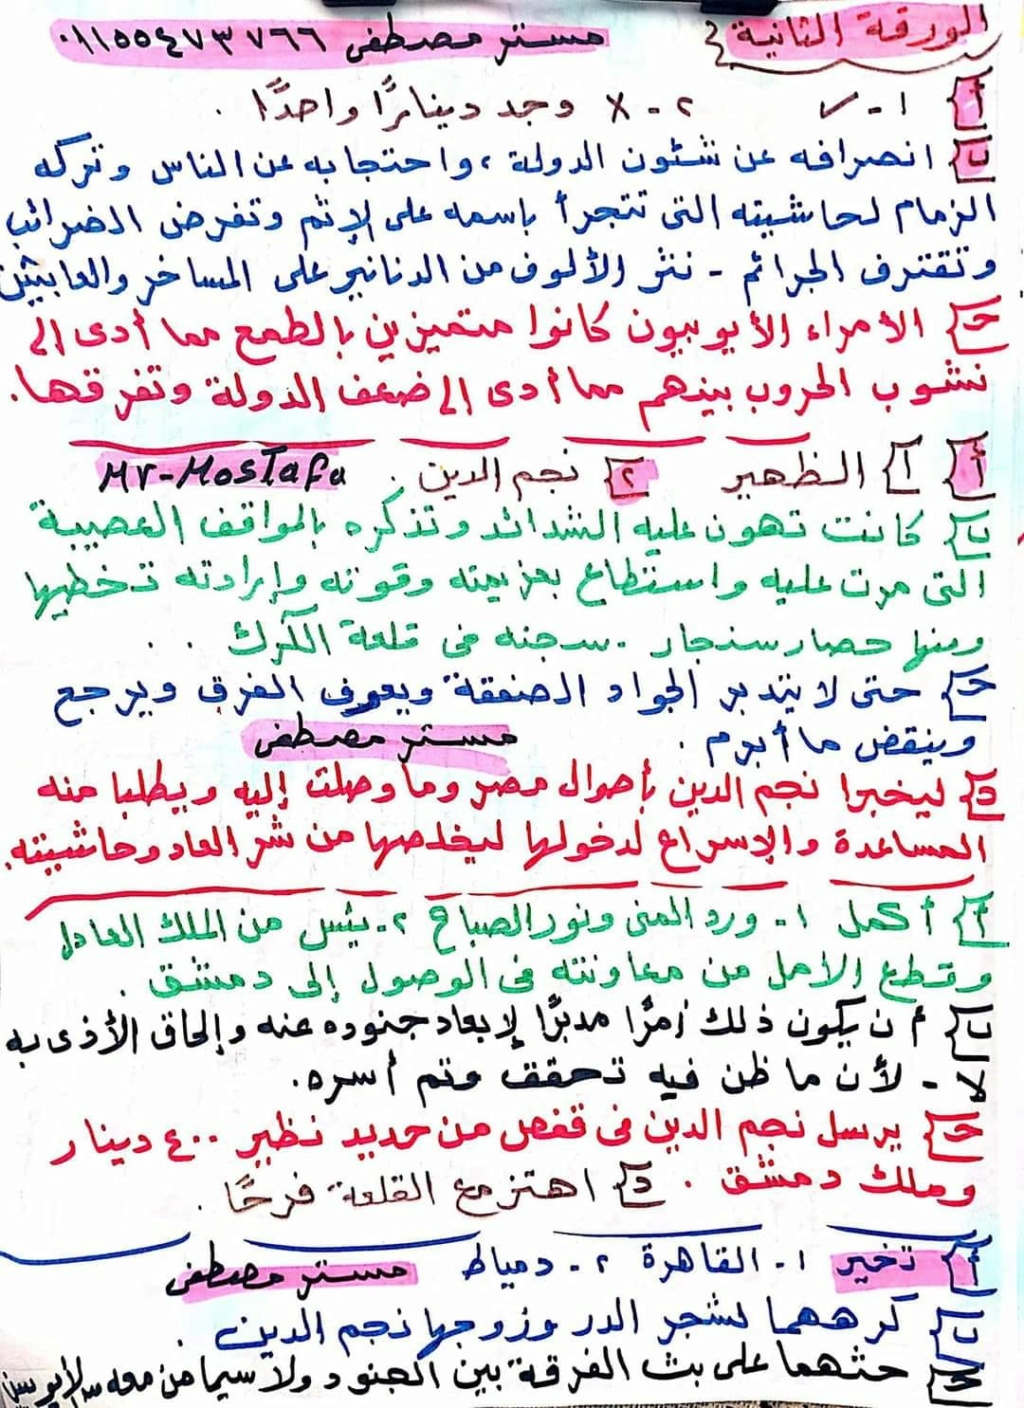 الورقة الثانية مستر مصطفى ٠١١٥٥٤٧٣٧٦٦
أ} ١- ✓ ٢- X وجد دينارًا واحدًا .
ب} انصرافه عن شئون الدولة ، واحتجابه عن الناس وتركه
الزمام لحاشيته التى تتجرأ باسمه على الإثم وتفرض الضرائب
وتقترف الجرائم - نثر الألوف من الدنانير على المساخر والعابثين
جـ} الأمراء الأيوبيون كانوا متميزين بالطمع مما أدى إلى
نشوب الحروب بينهم مما أدى إلى ضعف الدولة وتفرقها.
أ} ١} الظهير ٢} نجم الدين . Mr-Mostafa
ب} كانت تهون عليه الشدائد وتذكره بالمواقف العصيبة
التى مرت عليه واستطاع بعزيمته وقوته وإرادته تخطيها
ومنها حصار سنجار - سجنه فى قلعة الكرك . .
جـ} حتى لا يتدبر الجواد الصفقة ويعرف الفرق ويرجع
وينقض ما أبرم . مستر مصطفى
د} ليخبرا نجم الدين بأحوال مصر وما وصلت إليه ويطلبا منه
المساعدة والإسراع لدخولها ليخلصها من شر العادل وحاشيته.
أ} أكمل ١- ورد المنى ونور الصباح ٢- يئس من الملك العادل
وقطع الأمل من معاونته فى الوصول إلى دمشق .
ب} أن يكون ذلك أمرًا مدبرًا لإبعاد جنوده عنه وإلحاق الأذى به
لا - لأن ما ظن فيه تحقق وتم أسره.
جـ} يرسل نجم الدين فى قفص من حديد نظير ٤٠٠ دينار
وملك دمشق . د} اهتز مع القلعة فرحًا .
أ} تخير ١- القاهرة ٢- دمياط مستر مصطفى
ب} كرههما لشجر الدر وزوجها نجم الدين .
جـ} حثهما على بث الفرقة بين الجنود ولا سيما من معه من الأيوبيين